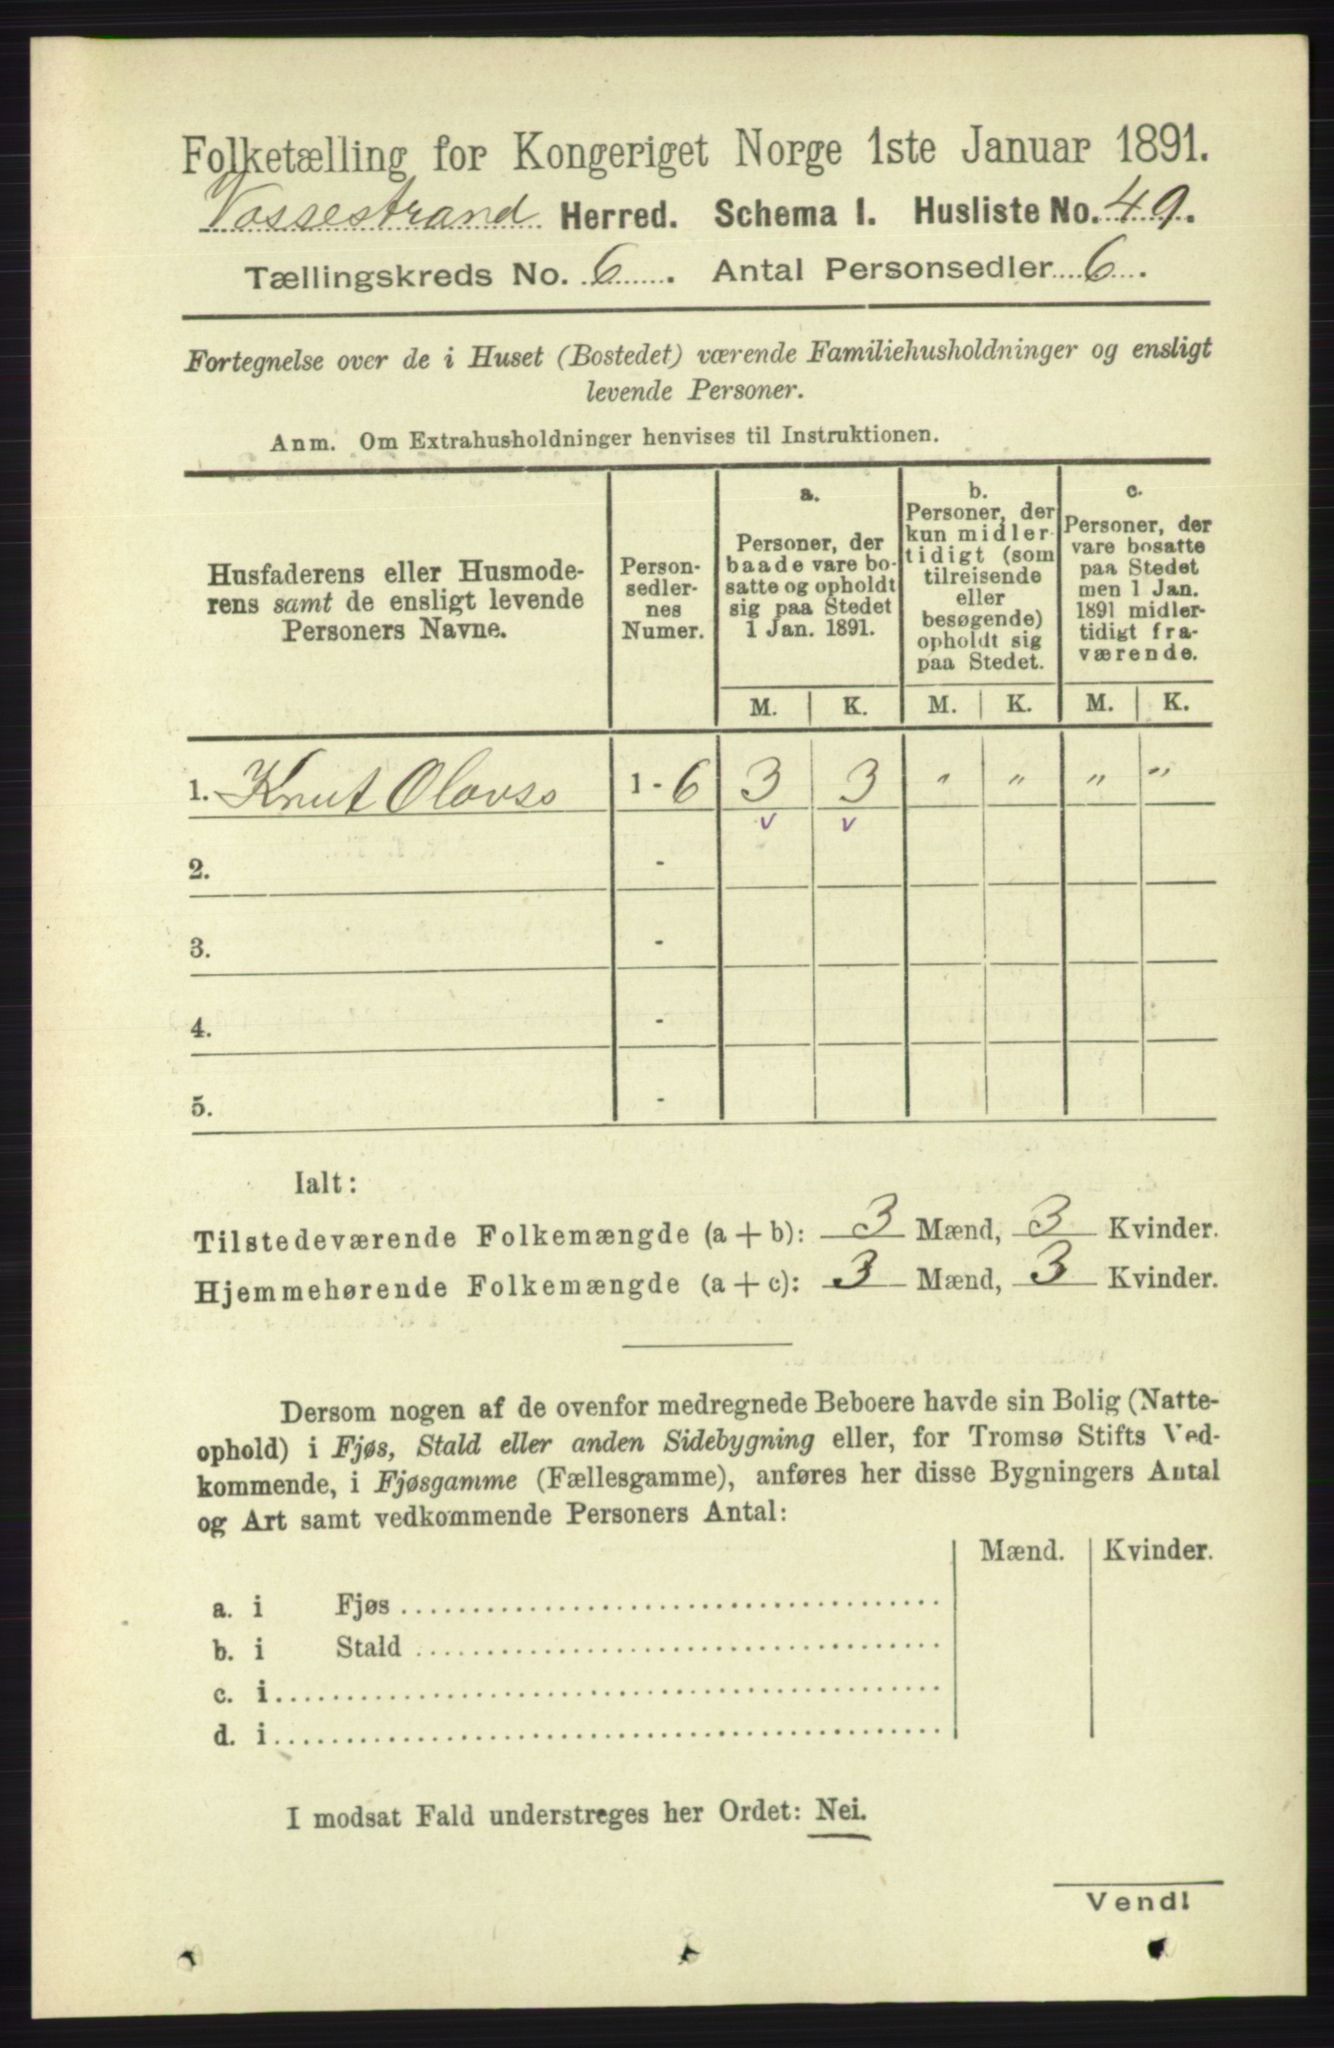 Folketælling for Kongeriget Norge 1ste Januar 1891.
Vossestrand Herred. Schema I. Husliste No. 49.
Tællingskreds No. 6. Antal Personsedler 6.
Fortegnelse over de i Huset (Bostedet) værende Familiehusholdninger og ensligt
levende Personer.
Anm. Om Extrahusholdninger henvises til Instruktionen.
Husfaderens eller Husmode-
rens samt de ensligt levende
Personers Navne.
Person-
sedler-
nes
Numer.
a.
Personer, der
baade vare bo-
satte og opholdt
sig paa Stedet
1 Jan. 1891.
b.
Personer, der
kun midler-
tidigt (som
tilreisende
eller
besøgende)
opholdt sig
paa Stedet.
c.
Personer, der
vare bosatte
paa Stedet
men 1 Jan.
1891 midler-
tidigt fra-
værende.
M. K. M. K. M. K.
1. Knut Olavss 1 - 6 3 3 " " " "
v v
2. -
3. -
4. -
5. -
Ialt:
Tilstedeværende Folkemængde (a + b): 3 Mænd, 3 Kvinder.
Hjemmehørende Folkemængde (a + c): 3 Mænd, 3 Kvinder.
Dersom nogen af de ovenfor medregnede Beboere havde sin Bolig (Natte-
ophold) i Fjøs, Stald eller anden Sidebygning eller, for Tromsø Stifts Ved-
kommende, i Fjøsgamme (Fællesgamme), anføres her disse Bygningers Antal
og Art samt vedkommende Personers Antal:
Mænd. Kvinder.
a. i Fjøs
b. i Stald
c. i
d. i
I modsat Fald understreges her Ordet: Nei.
Vend!